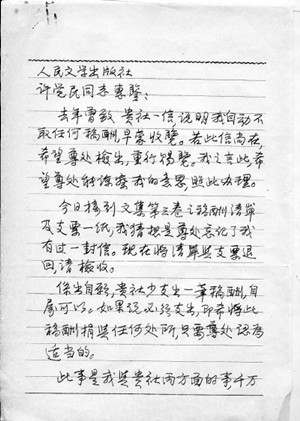 人民文学出版社
许觉民同志尊鉴:
去年曾致贵社一信说明我自动不
取任何稿酬,早蒙收览。若此信尚在,
希望尊处检出,重行钧览。我之言此,希
望尊处能谅察我的意思照此办理。
今日接到文集第三卷之稿酬清单
及支票一纸,我猜想是尊处忘记了我
有过一封信。现在将清单与支票退
回请检收。
贵社少支出一笔稿酬,自
属可以。如果说必须支出,即希将此
稿酬捐与任何处所,只需尊处认为
适当的。
此事是我与贵社两方面的事千万